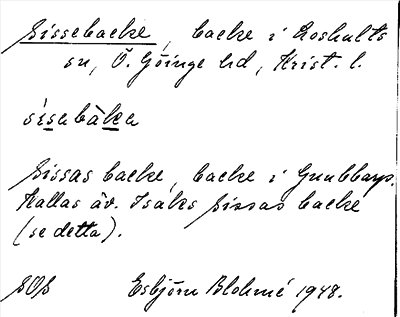 Sissebacke, backe i Loshults
sn, Ö. Göinge hd, Krist. l.
sísabàka
Sissas backe, backe i Gnubbarp.
Kallas äv. Isaks Sissas backe
(se detta).
SOS Esbjörn Blohmé 1948.